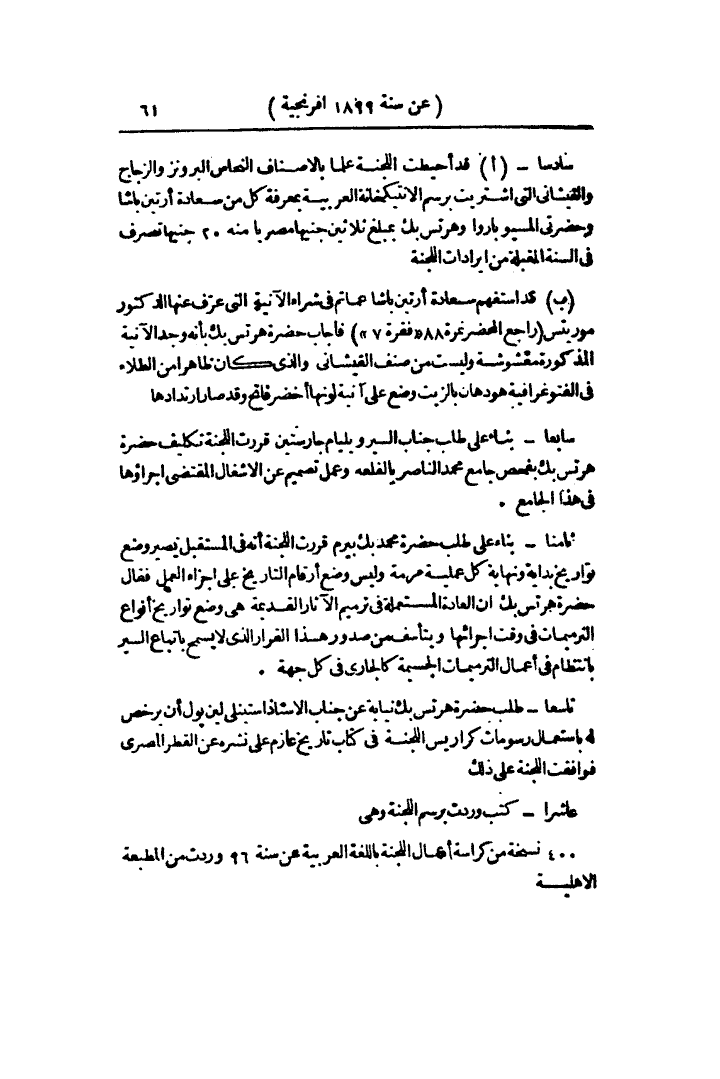 (عن سنة ١٨٩٩ افرنجية) ٦١
سادسا - (أ) قد أحيطت اللجنة علما بالاصناف النحاس البرونز والزجاج
والقيشانى التى اشتريت برسم الانتيكخانة العربية بمعرفة كل من سعادة أرتين باشا
وحضرتى المسيو باروا وهرتس بك بمبلغ ثلاثين جنيها مصريا منه ٢٠ جنيها تصرف
فى السنة المقبلة من ايرادات اللجنة
(ب) قد استفهم سعادة أرتين باشا عما تم فى شراء الآنية التى عرف عنها الدكتور
موريتس (راجع المحضر نمرة ٨٨ «فقرة ٧») فأجاب حضرة هرتس بك بأنه وجد الآنية
المذكورة مغشوشة وليست من صنف القيشانى والذى كان ظاهرا من الطلاء
فى الفتوغرافية هو دهان بالزيت وضع على آنية لونها أخضر فاتح وقد صار ارتدادها
سابعا - بناء على طلب جناب السير ويليام جارستين قررت اللجنة تكليف حضرة
هرتس بك بفحص جامع محمد الناصر بالقلعه وعمل تصميم عن الاشغال المقتضى اجراؤها
فى هذا الجامع .
ثامنا - بناء على طلب حضرة محمد بك بيرم قررت اللجنة أنه فى المستقبل يصير وضع
تواريخ بداية ونهاية كل عملية مهمة وليس وضع أرقام التاريخ على اجزاء العمل فقال
حضرة هرتس بك ان العادة المستعملة فى ترميم الآثار القديمة هى وضع تواريخ أنواع
الترميمات فى وقت اجرائها ويتأسف من صدور هذا القرار الذى لا يسمح باتباع السير
بانتظام فى أعمال الترميمات الجسيمة كالجارى فى كل جهة .
تاسعا - طلب حضرة هرتس بك نيابة عن جناب الاستاذ استينلى لين پول أن يرخص
له باستعمال رسومات كراريس اللجنة فى كتاب تاريخ عازم على نشره عن القطر المصرى
فوافقت اللجنة على ذلك
عاشرا - كتب وردت برسم اللجنة وهى
٤٠٠ نسخة من كراسة أعمال اللجنة باللغة العربية عن سنة ٩٦ وردت من المطبعة
الاهلية